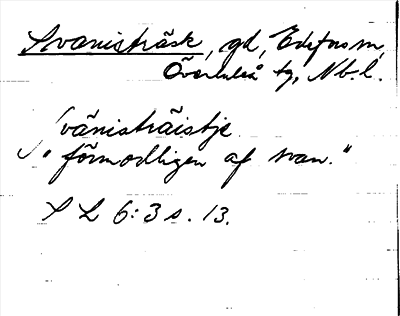 Svanisträsk, gd, Edefors sn,
Överluleå tg, Nb. l.
svänisträistje
"förmodligen af svan."
S L 6:3 s. 13.